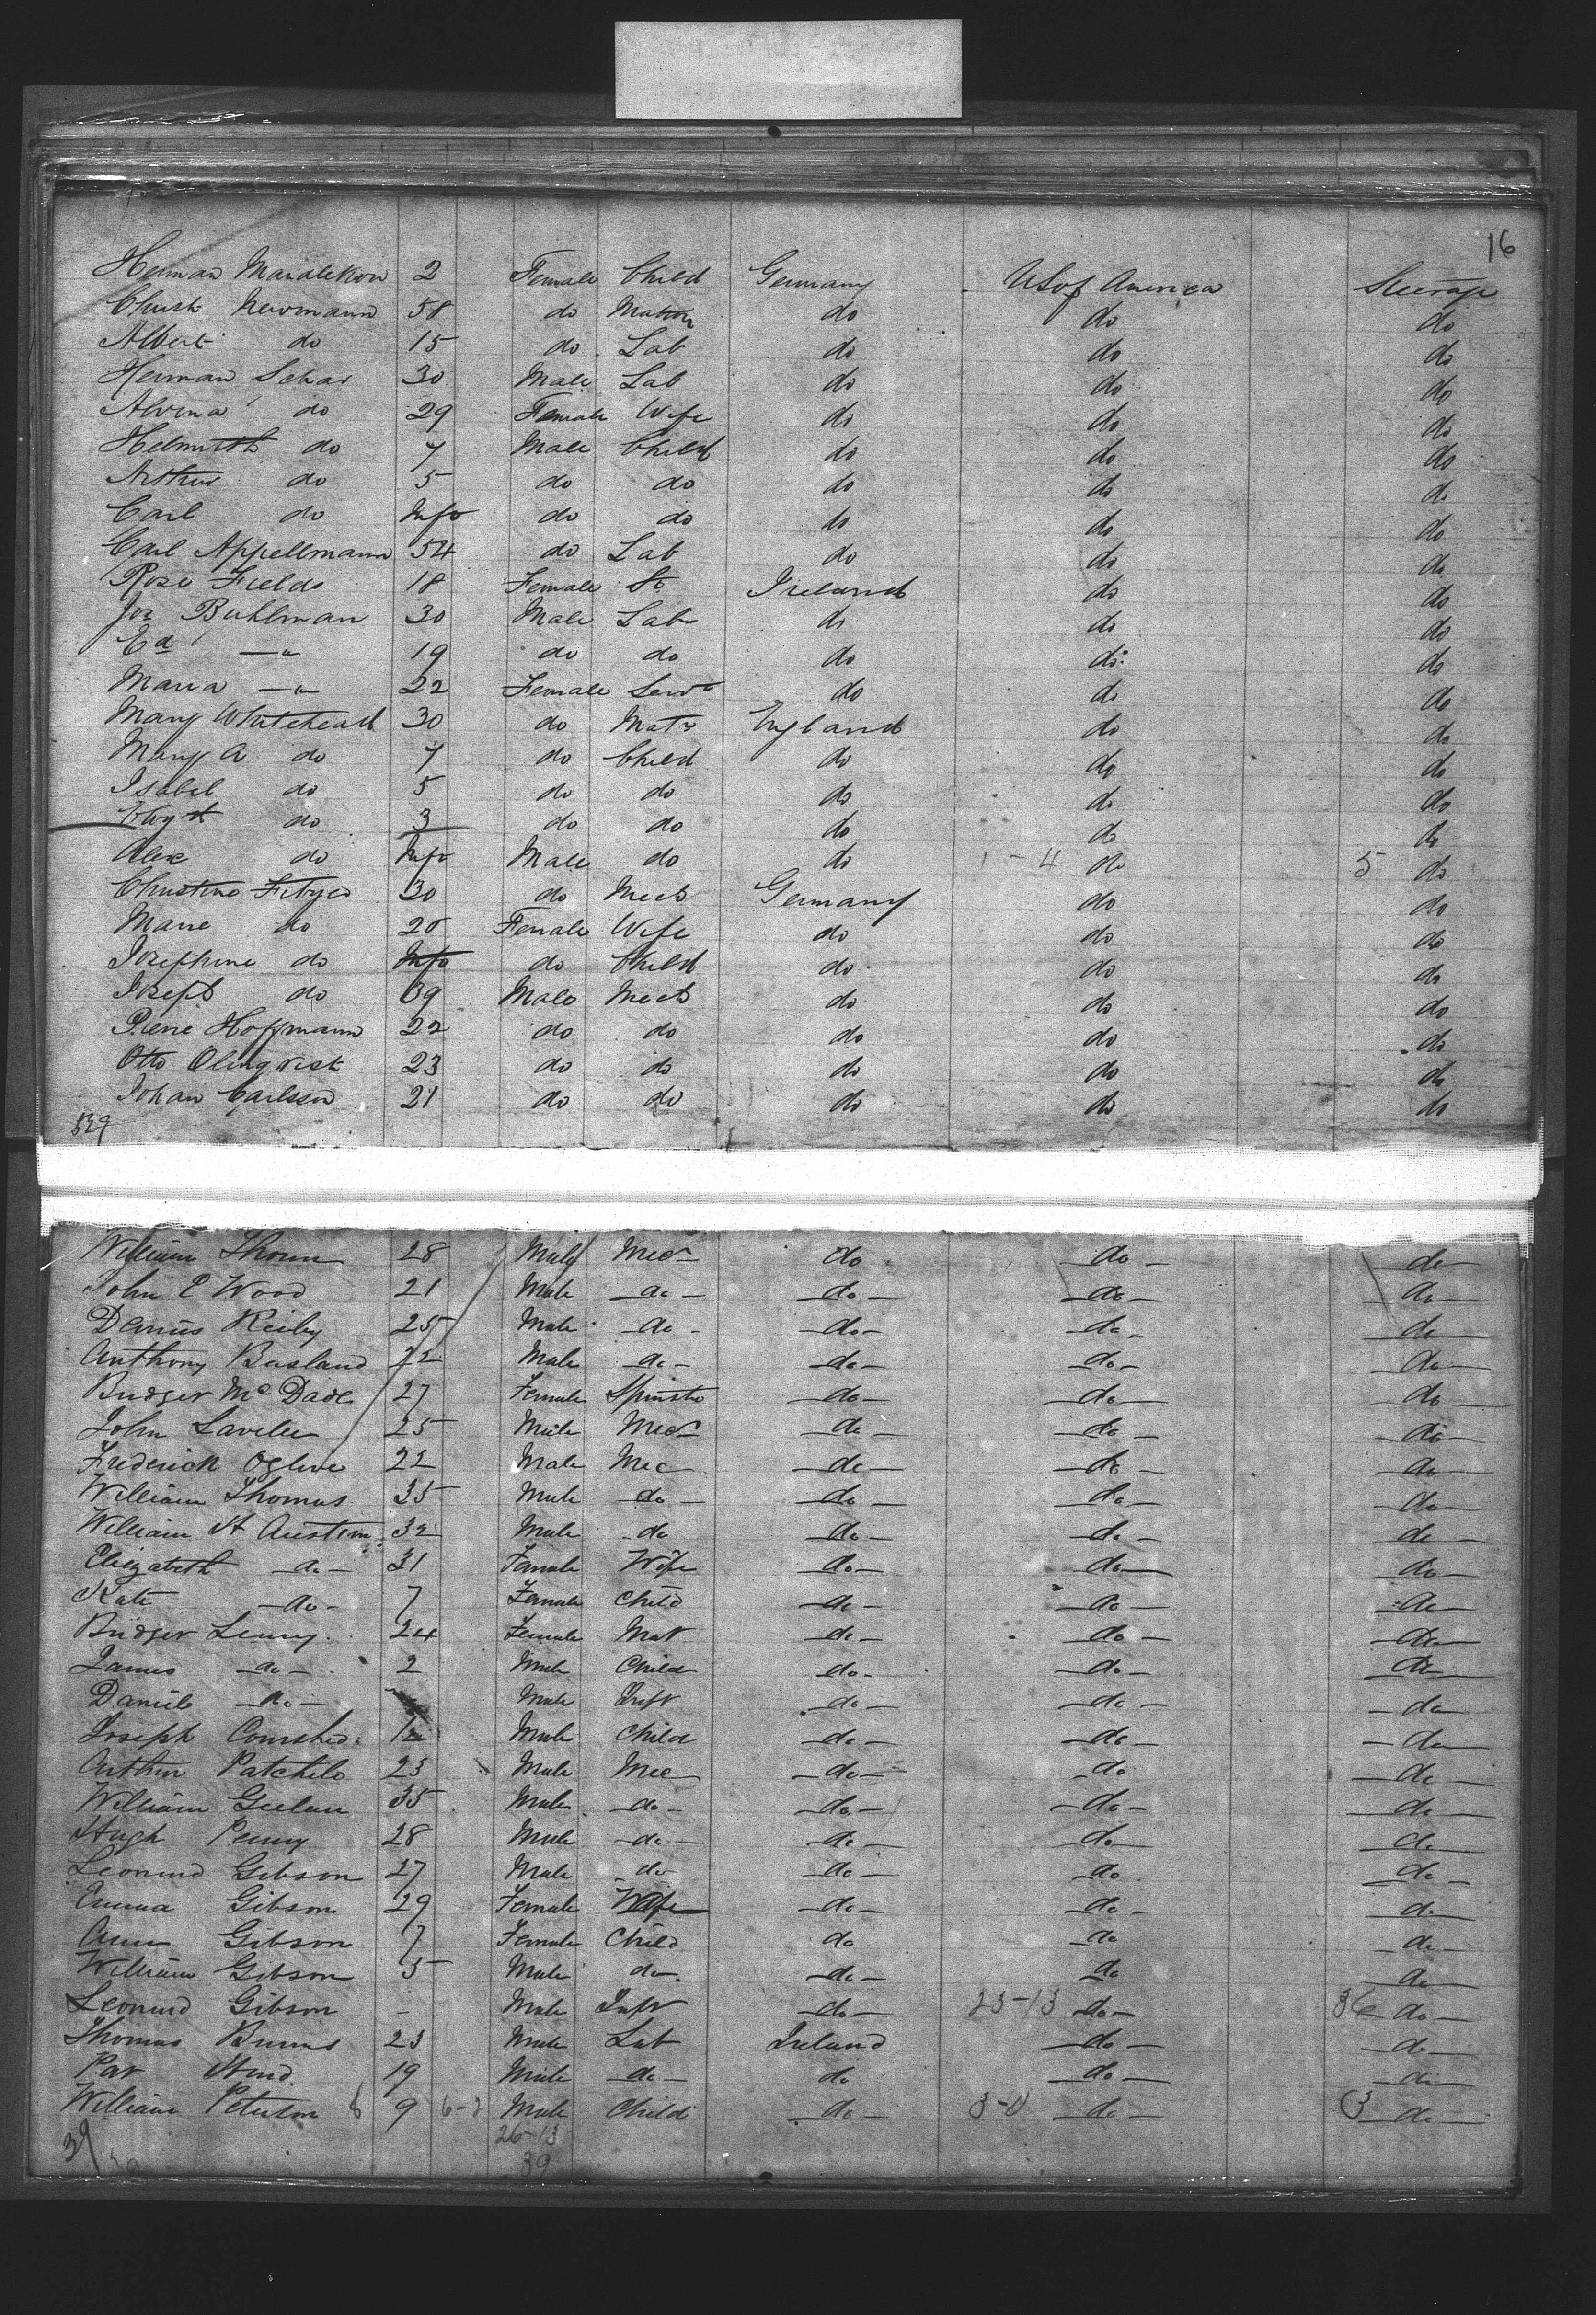 16
Herman Manalekow 2 Female Child Germany US of America Steerage
Christ Newmann 58 do Matron do do do
Albert do 15 do Lab do do do
Herman Schar 30 Male Lab do do do
Alvina do 29 Female Wife do do do
Helmuth do 7 Male Child do do do
Arthur do 5 do do do do do
Carl do Inft do do do do do
Carl Appellmann 54 do Lab do do do
Rose Fields 18 Female Sp Ireland do do
Jos Buhlman 30 Male Lab do do do
Ed —"— 19 do do do do do
Maria —"— 22 Female Servt do do do
Mary Whitehead 30 do Matr England do do
Mary A do 7 do Child do do do
Isabel do 5 do do do do do
do 3 do do do do do
Alex do Inft Male do do 1-4 do 5 do
Christine 30 do Mech Germany do do
Marie do 28 Female Wife do do do
Josephine do Inft do Child do do do
Joseph do 39 Male Mech do do do
Pierre Hoffmann 22 do do do do do
Otto Olmqvist 23 do do do do do
Johan Carlsson 21 do do do do do
539
William Thorn 28 Male Mec do do do
John P Wood 21 Male do do do do
Dennis Reily 25 Male do do do do
Anthony Busland 22 Male do do do do
Bridget McDade 27 Female Spinstr do do do
John Lavelle 25 Male Mec do do do
Frederick Ogline 22 Male Mec do do do
William Thomas 35 Male do do do do
William H Austin 32 Male do do do do
Elizabeth do 31 Female Wife do do do
Kate do 7 Female Child do do do
Bridget Leary 24 Female Mat do do do
James do 2 Male Child do do do
Daniel do Male Inft do do do
Joseph 12 Male Child do do do
Arthur Patchele 23 Male Mec do do do
William Geelan 35 Male do do do do
Hugh Penny 28 Male do do do do
Leonard Gibson 27 Male do do do do
Emma Gibson 29 Female Wife do do do
Ann Gibson 7 Female Child do do do
William Gibson 5 Male do do do do
Leonard Gibson - Male Inft do 23-13 do 36 do
Thomas Burns 23 Male Lab Ireland do do
Pat 19 Male do do do do
William Peterson 6 9 6-2 Male Child do 3-0 do 3 do
39 26-13
39